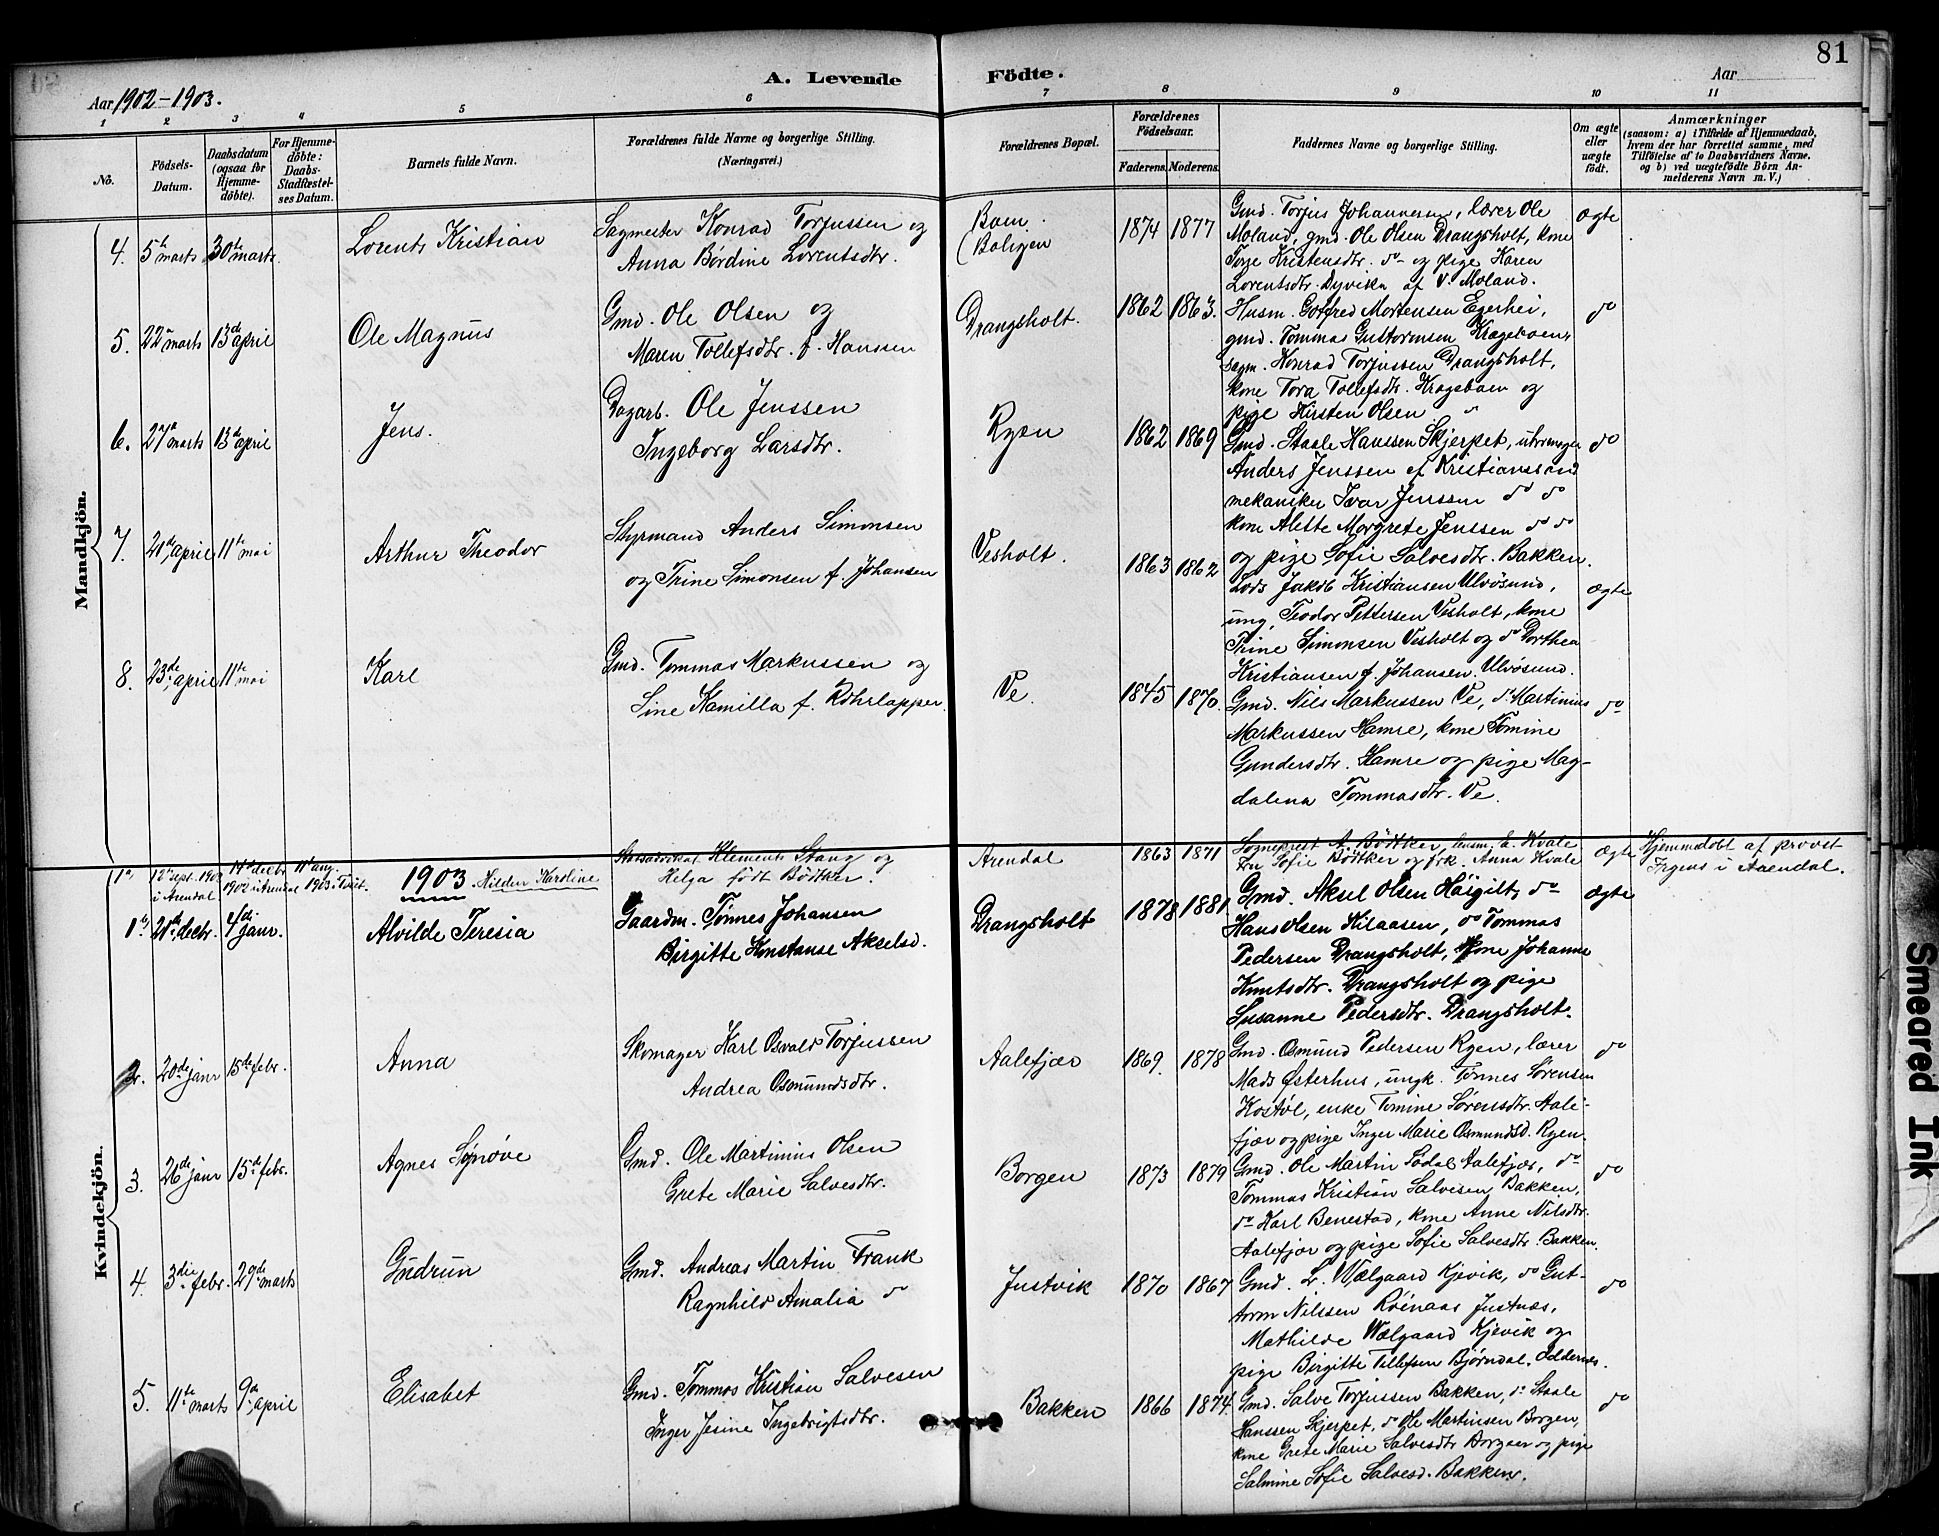 81
A. Levende Födte.
Aar 1902-1903.
Aar
1 2 3 4 5 6 7 8 9 10 11
No.
Födsels-Datum.
Daabsdatum (ogsaa for Hjemme-döbte).
For Hjemme-döbte: Daabs-Stadfæstel-ses Datum.
Barnets fulde Navn.
Forældrenes fulde Navne og borgerlige Stilling.
(Næringsvei.)
Forældrenes Bopæl.
Forældrenes Födselsaar.
Faderens. Moderens.
Faddernes Navne og borgerlige Stilling.
Om ægte eller uægte födt.
Anmærkninger
(saasom: a) i Tilfælde af Hjemmedaab,
hvem der har forrettet samme, med
Tilföielse af to Daabsvidners Navne,
og b) ved uægtefödte Börn An-
melderens Navn m. V.)
Mandkjön.
4. 5te marts 30te marts Lorents Kristian
Sagmester Konrad Torjussen og
Anna Børdine Lorentsdtr.
Boen. (Boligen
1874 1877
Gmd. Torjus Johannesen, lærer Ole
Moland, gmd. Ole Olsen Drangsholt, kone
Torje Kristensdtr. do og pige Karen
Lorentsdtr. Dyvika af V. Moland.
ægte
5. 22n marts 13de april Ole Magnus
Gmd. Ole Olsen og
Maren Tollefsdtr. f. Hanssen
Drangsholt.
1862 1863.
Husm. Gotfred Mortensen Egerhei,
gmd. Tommas Guttormsen Krageboen,
sagm. Konrad Torjussen Drangsholt,
kone Tora Tollefsdtr. Kragebaen og
pige Kirsten Olsen "
do
6. 27n marts 13de april Jens.
Dagarb. Ole Jenssen
Ingeborg Larsdtr.
Ryen
1862 1869
Gmd. Staale Hanssen Skjerpet, uhrmager
Anders Jenssen af Kristianssand
mekaniker Ivar Jenssen do do
kone Alette Margrete Jenssen do do
og pige Sofie Salvesdtr. Bakken.
do
7. 21de april 11te mai Arthur Theodor
Styrmand Anders Simonsen
og Trine Simonsen f. Johansen
Vesholt.
1863 1862
Lods Jakob Kristiansen Ulvøsund,
ung. Teodor Pettersen Vesholt, kone
Trine Simonsen Vesholt og do Dorthea
Kristiansen f. Johansen Ulvøsund.
ægte
8. 23de april 11te mai Karl
Gmd. Tommas Markussen og
Sine Kamilla f. Röhrlapper.
Ve.
1845 1870.
Gmd. Nils Markussen Ve, do Martinius
Markussen Hamre, kone Tomine
Gundersdtr. Hamre og pige Mag-
dalena Tommasdtr. Ve.
do
1903
Kvindekjön.
1a 12te sept. 1902 i Arendal 14de decbr. 1902 i Arendal 11te aug. 1903 i Tveit.
Hilden Karoline
Statsadvokat Klements Stang og
Helga født Bödtker.
Arendal
1863 1871
Sogneprest A. Bödtker, lensm. E. Kvale
Fru Sofie Bödtker og frk. Anna Kvale
ægte
Hjemmedøbt af provst
Irgens i Arendal.
1b 21de decbr. 4de janr. Alvilde Teresia
Gaardm. Tønnes Johansen
Birgitte Konstanse Akselsd.
Drangsholt
1878 1881
Gmd. Aksel Olsen Höigilt, do
Hans Olsen Kilaasen, do Tommas
Pedersen Drangsholt, kone Johanne
Knutsdtr. Drangsholt og pige
Susanne Pedersdtr. Drangsholt.
ægte
2. 20de janr 15de febr. Anna
Skomager Karl Osvald Torjussen
Andrea Osmundsdtr.
Aalefjær
1869. 1878
Gmd. Osmund Pedersen Ryen, lærer
Mads Østerhus, ungk. Tønnes Sørensen
Kostøl, enke Tomine Sørensdtr. Aale-
fjær og pige Inger Marie Osmundsd. Ryen.
do
3. 26de janr 15de febr. Agnes Synøve
Gmd. Ole Martinius Olsen
Grete Marie Salvesdtr.
Borgen
1873 1879
Gmd. Ole Martin Sødal Aalefjær, do
Tommas Kristian Salvesen Bakken,
do Karl Benestad, kone Anne Nilsdtr.
Aalefjær og pige Sofie Salvesdtr. Bakken.
do
4. 3die febr. 29de marts Gudrun
Gmd. Andreas Martin Frank
Ragnhild Amalia do
Justvik
1870 1867
Gmd. L. Wælgaard Kjevik, do Gut-
torm Nilssen Röinaas Justnæs,
Mathilde Wælgaard Kjevik og
pige Birgitte Tellefsen Bjørndal. Oddernes.
do
5. 11te marts 9de april Elisabet
Gmd. Tommas Kristian Salvesen
Inger Jesine Ingebrigtsdtr.
Bakken
1866 1874.
Gmd. Salve Torjussen Bakken, do Staale
Hanssen Skjerpet, do Ole Martinsen Borgen,
kone Grete Marie Salvesdtr. Borgen og pige
Salmine Sofie Salvesd. Bakken.
do
Smeared Ink